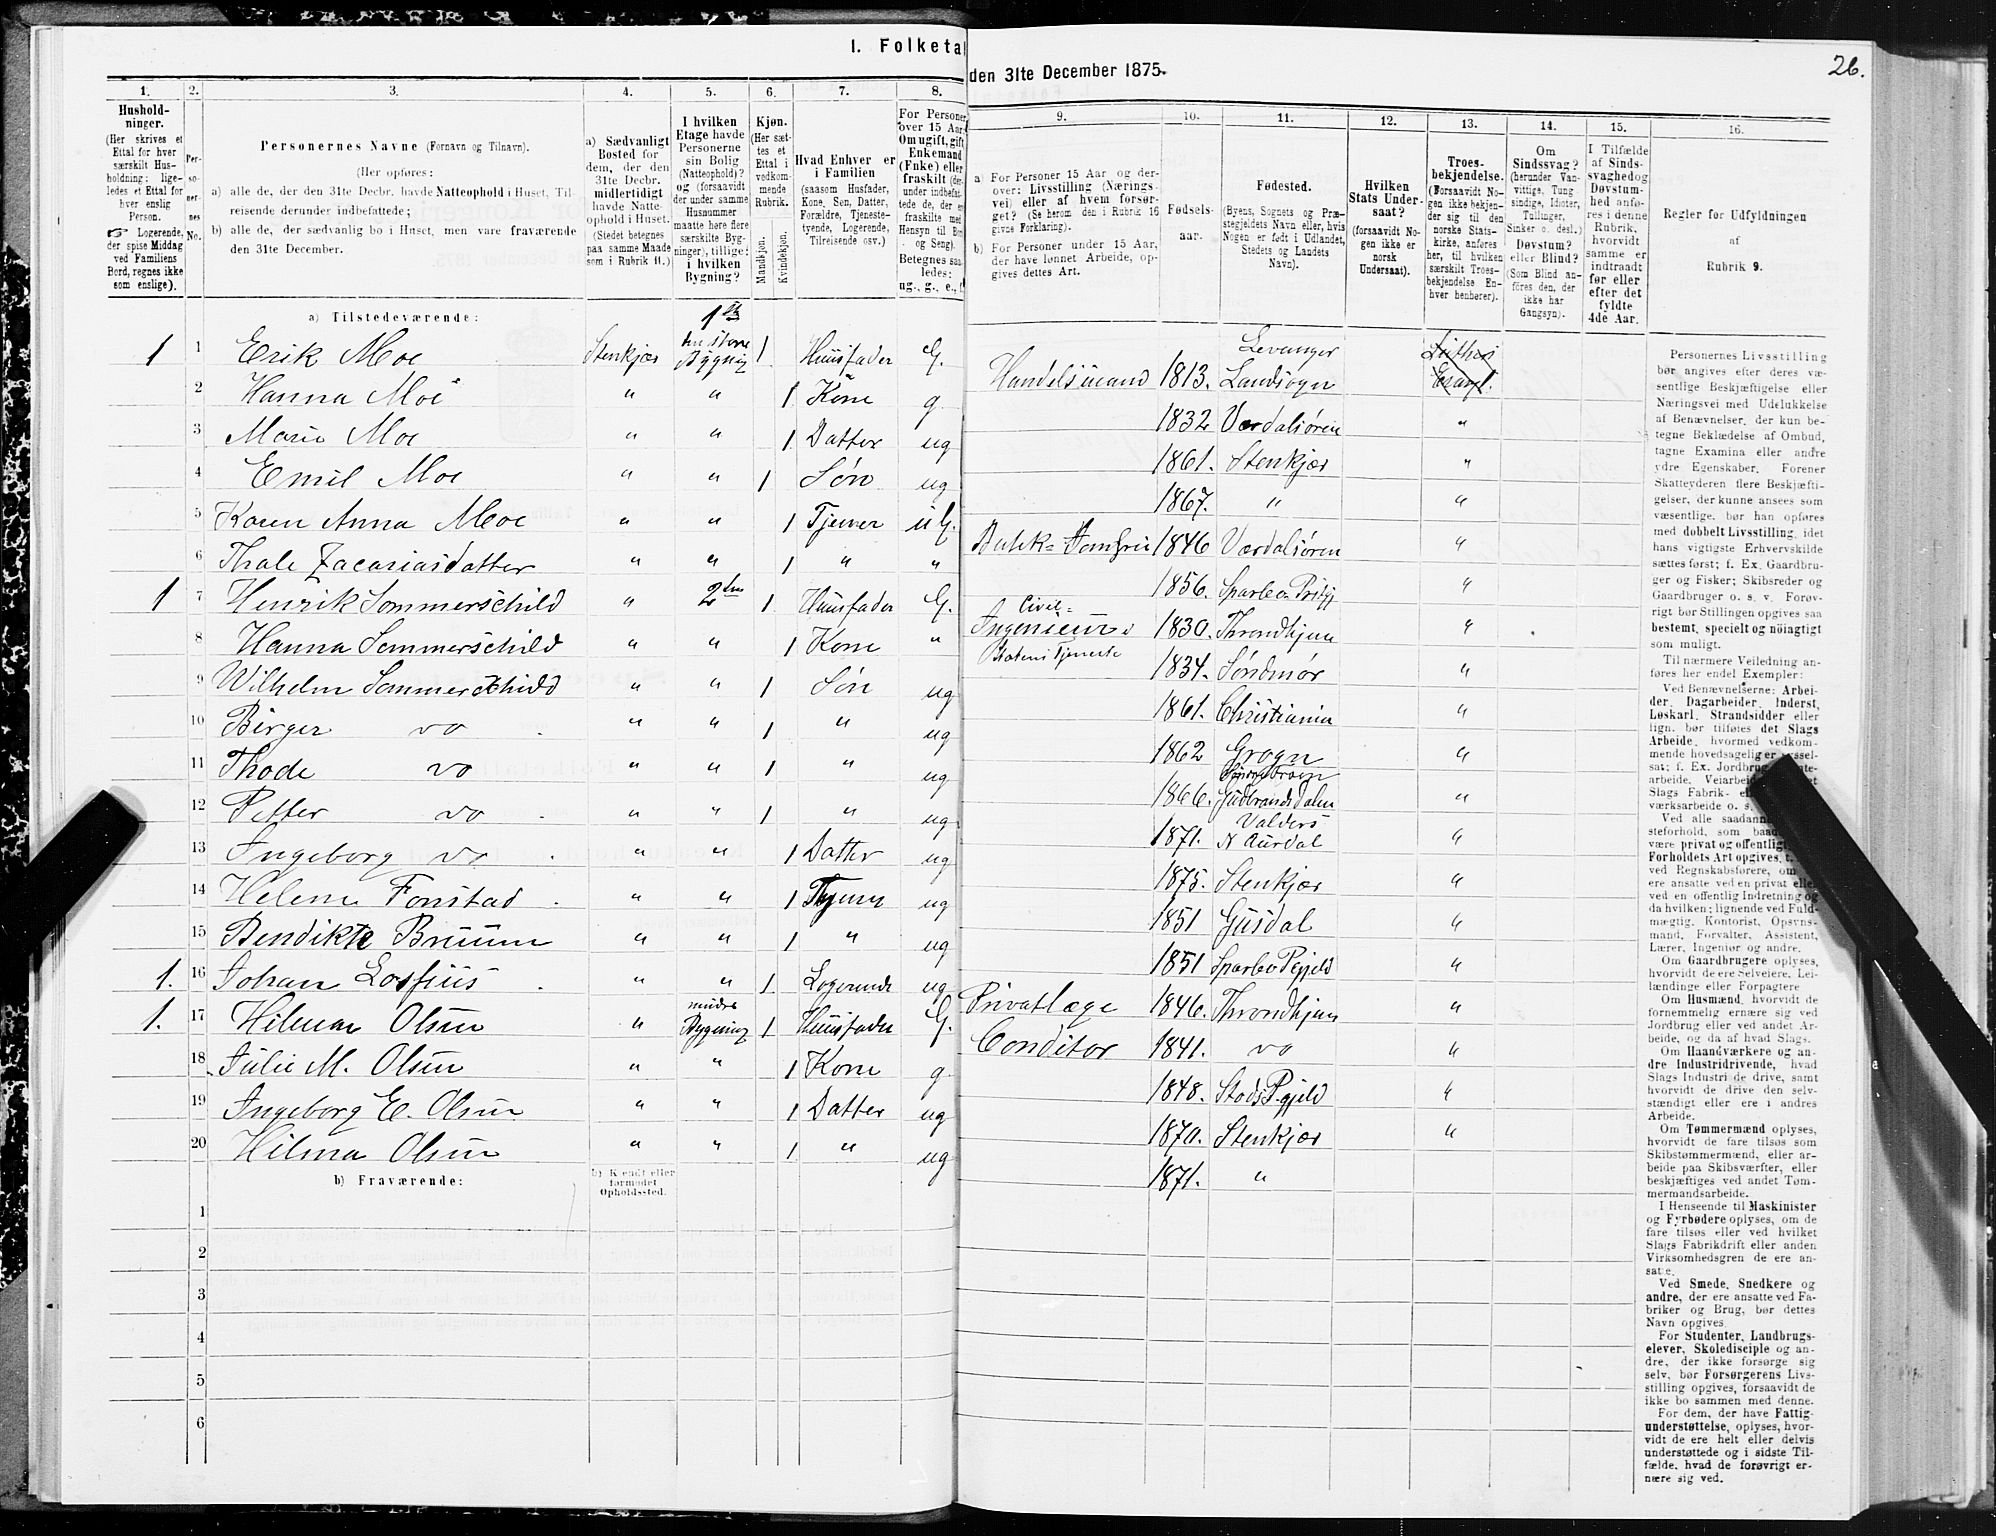 I. Folketal den 31te December 1875.
26.
1. 2. 3. 4. 5. 6. 7. 8. 9. 10. 11. 12. 13. 14. 15. 16.
Hushold-
ninger.
(Her skrives et
Ettal for hver
særskilt Hus-
holdning; lige-
ledes et Ettal for
hver enslig
Person.
☞ Logerende,
der spise Middag
ved Familiens
Bord, regnes ikke
som enslige).
Per-
so-
ner-
nes
No.
Personernes Navne (Fornavn og Tilnavn).
(Her opføres:
a) alle de, der den 31te Decbr. havde Natteophold i Huset, Til-
reisende derunder indbefattede;
b) alle de, der sædvanlig bo i Huset, men vare fraværende
den 31te December.
a) Sædvanligt
Bosted for
dem, der den
31te Decbr.
midlertidigt
havde Natte-
ophold i Huset.
(Stedet betegnes
paa samme Maade
som i Rubrik 11.)
I hvilken
Etage havde
Personerne
sin Bolig
(Natteophold)?
og (forsaavidt
der under samme
Husnummer
maatte høre flere
særskilte Byg-
ninger), tillige:
i hvilken
Bygning?
Kjøn.
(Her sæt-
tes et
Ettal i
vedkom-
mende
Rubrik.
Mandkjøn.
Kvindekjøn.
Hvad Enhver er
i Familien
(saasom Husfader,
Kone, Søn, Datter,
Forældre, Tjeneste-
tyende, Logerende,
Tilreisende osv.)
For Personer
over 15 Aar:
Om ugift, gift,
Enkemand
(Enke) eller
fraskilt
a) For Personer 15 Aar og der-
over: Livsstilling (Nærings-
vei) eller af hvem forsør-
get? (Se herom den i Rubrik 16
givne Forklaring).
b) For Personer under 15 Aar,
der have lønnet Arbeide, op-
gives dettes Art.
Fødsels-
aar.
Fødested.
(Byens, Sognets og Præ-
stegjeldets Navn eller, hvis
Nogen er født i Udlandet,
Stedets og Landets
Navn).
Hvilken
Stats Under-
saat?
(forsaavidt No-
gen ikke er
norsk
Undersaat).
Troes-
bekjendelse.
(Forsaavidt No-
gen ikke bekjen-
der sig til den
norske Stats-
kirke, anføres
her, til hvilken
særskilt Troes-
bekjendelse En-
hver henhører).
Om
Sindssvag?
(herunder Van-
vittige, Tung-
sindige, Idioter,
Tullinger,
Sinker o. desl.)
Døvstum?
eller Blind?
(Som Blind an-
føres den, der
ikke har
Gangsyn).
I Tilfælde
af Sinds-
svaghed og
Døvstum-
hed anfø-
res i denne
Rubrik,
hvorvidt
samme er
indtraadt
før eller
efter det
fyldte
4de Aar.
Regler for Udfyldningen
af
Rubrik 9.
a) Tilstedeværende:
1 1 Erik Moe Stenkjær 1 Huusfader G. Handelsmand 1813. Levanger Landsogn
2 Hanna Moe " " 1 Kone g 1832 Værdalsøren "
3 Marie Moe " " 1 Datter ug 1861. Stenkjær "
4 Emil Moe " " 1 Søn ug 1867. " "
5 Karen Anna Moe " " 1 Tjener 1846 Værdalsøren "
6 Thale Zacariasdatter " " 1 " " 1856. "
1 7 Henrik Sommerschild " 1 Huusfader G. Civil- Ingenieur i Statens Tjeneste 1830. Throndhjem "
8 Hanna Sommerschild " " 1 Kone " 1834. Søndmør "
9 Wilhelm Sommerschild " " 1 Søn ug 1861. Christiania "
10 Birger do " " 1 " ug 1862 "
11 Thode do " " 1 " ug 1866. Gudbrandsdalen "
12 Petter do " " 1 " ug 1871. Valders N Aurdal "
13 Ingeborg do " " 1 Datter ug 1875. Stenkjær "
14 Helene Fonstad " " 1 Tjener ug 1851 Gusdal "
15 Bendikte Bruun " " 1 " ug 1851 Sparbo Pgjeld "
1. 16 Johan " " 1 Logerende ug Privatlæge 1846. Throndhjem "
1. 17 Hilmar Olsen " Bygning 1 Huusfader G. Conditor 1841. do "
18 Julie M. Olsen " " 1 Kone g 1848. Stods Pgjeld "
19 Ingeborg E. Olsen " " 1 Datter ug 1870. Stenkjær "
20 Hilma Olsen " " 1 " ug 1871. "
b) Fraværende:
b) Kjendt eller
formodet
Opholdssted.
1
2
3
4
5
6
Personernes Livsstilling
bør angives efter deres væ-
sentlige Beskjæftigelse eller
Næringsvei med Udelukkelse
af Benævnelser, der kun be-
tegne Beklædelse af Ombud,
tagne Examina eller andre
ydre Egenskaber. Forener
Skatteyderen flere Beskjæfti-
gelser, der kunne ansees som
væsentlige, bør han opføres
med dobbelt Livsstilling, idet
hans vigtigste Erhvervskilde
sættes først; f. Ex. Gaardbru-
ger og Fisker; Skibsreder og
Gaardbruger o. s. v. Forøv-
rigt bør Stillingen opgives saa
bestemt, specielt og nöiagtigt
som muligt.
Til nærmere Veiledning an-
føres her endel Exempler:
Ved Benævnelserne: Arbei-
der, Dagarbeider, Inderst,
Løskarl, Strandsidder eller
lign. bør tilføies det Slags
Arbeide, hvormed vedkom-
mende hovedsagelig er syssel-
sat; f. Ex. Jordbrug
arbeide, Veiarbeide
Slags Fabrik-
værksarbeide o. s.
Ved alle saadanne
steforhold, som
være privat og offentlig
Forholdets Art opgives,
ved Regnskabsførere, om
ere ansatte ved en privat eller
ved en offentlig Indretning og
da hvilken; lignende ved Fuld-
mægtig, Kontorist, Opsyns-
mand, Forvalter, Assistent,
Lærer, Ingeniør og andre.
Om Gaardbrugere oplyses,
hvorvidt de ere Selveiere, Lei-
lændinge eller Forpagtere
Om Husmænd, hvorvidt de
fornemmelig ernære sig ved
Jordbrug eller ved andet Ar-
beide, og da af hvad Slags.
Om Haandværkere og an-
dre Industridrivende, hvad
Slags Industri de drive, samt
hvorvidt de drive den selv-
stændigt eller ere i andres
Arbeide.
Om Tømmermænd oplyses,
hvorvidt de fare tilsøs som
Skibstømmermænd, eller ar-
beide paa Skibsværfter, eller
beskjæftiges ved andet Tøm-
mermandsarbeide.
I Henseende til Maskinister
og Fyrbødere oplyses, om de
fare tilsøs eller ved hvilket
Slags Fabrikdrift eller anden
Virksomhedsgren de ere an-
satte.
Ved Smede, Snedkere og
andre, der ere ansatte ved Fa-
briker og Brug, bør dettes
Navn opgives.
For Studenter, Landbrugs-
elever, Skoledisciple og an-
dre, der ikke forsørge sig
selv, bør Forsørgerens Livs-
stilling opgives, forsaavidt de
ikke bo sammen med denne.
For dem, der have Fattig-
understøttelse, oplyses, hvor-
vidt de ere helt eller delvis
understøttede og i sidste Til-
fælde, hvad de forøvrigt er-
nære sig ved.